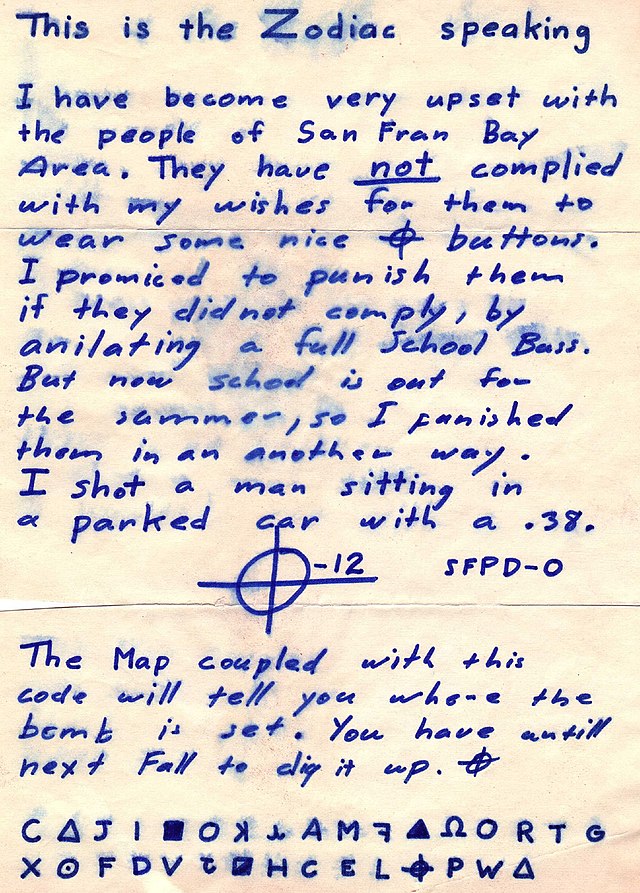 This is the Zodiac speaking
I have become very upset with
the people of San Fran Bay
Area. They have not complied
with my wishes for them to
wear some nice ⌖ buttons.
I promiced to punish them
if they did not comply, by
anilating a full School Buss.
But now school is out for
the summer, so I punished
them in an another way.
I shot a man sitting in
a parked car with a .38.
⌖-12 SFPD-0
The Map coupled with this
code will tell you where the
bomb is set. You have antill
next Fall to dig it up. ⌖
C Δ J I ■ O ꓘ ⅄ A M ꟻ ▲ Ω O R T G
X ⊙ F D V Ɛ ◪ H C E L ⌖ P W Δ